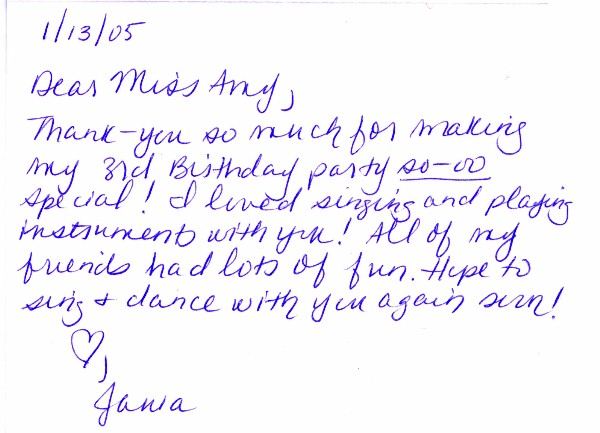 1/13/05
Dear Miss Amy,
Thank-you so much for making
my 3rd Birthday party so-oo
special! I loved singing and playing
instruments with you! All of my
friends had lots of fun. Hope to
sing + dance with you again soon!
♡,
Jania